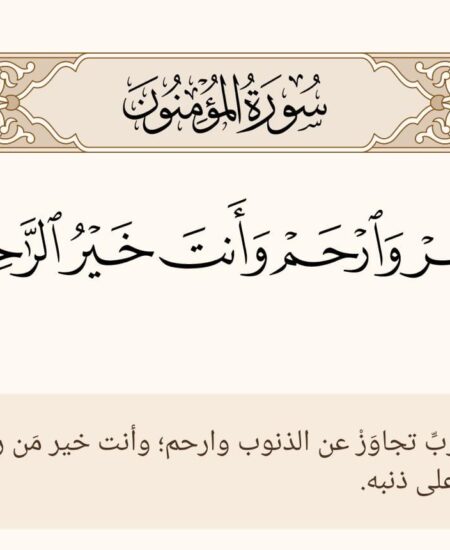 سُورَةُ المُؤْمِنُونَ
وَٱرْحَمْ وَأَنتَ خَيْرُ
تجاوَزْ عن الذنوب وارحم؛ وأنت خير مَن
ذنبه.